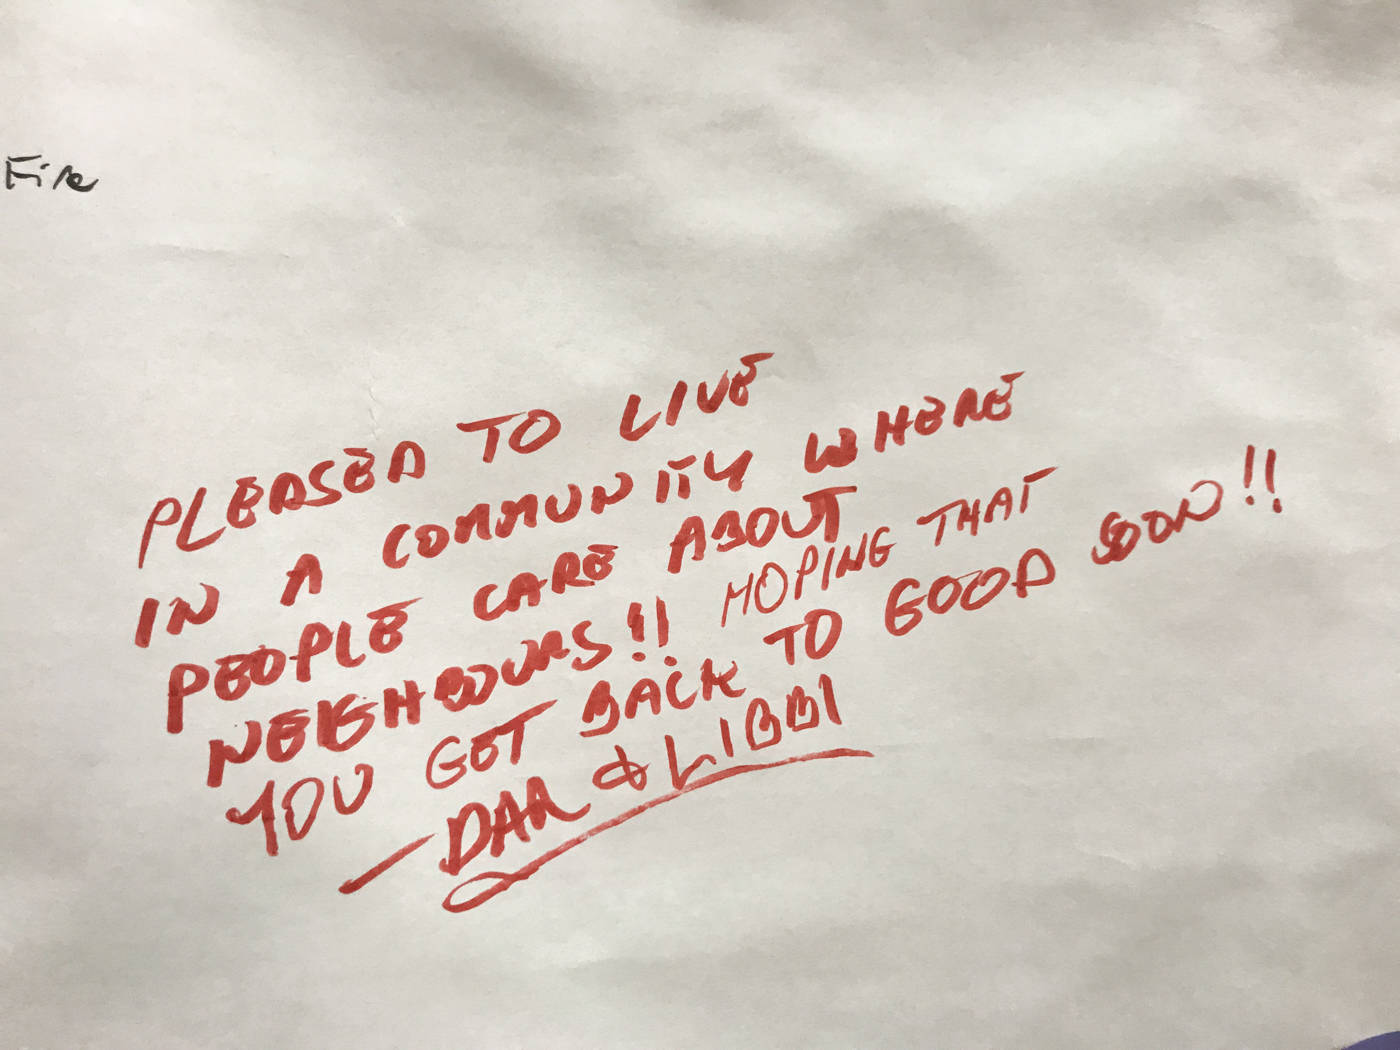 Fire
PLEASED TO LIVE
IN A COMMUNITY WHERE
PEOPLE CARE ABOUT
NEIGHBOURS!! HOPING THAT
YOU GET BACK TO GOOD SOON!!
— DAR & LIBBI